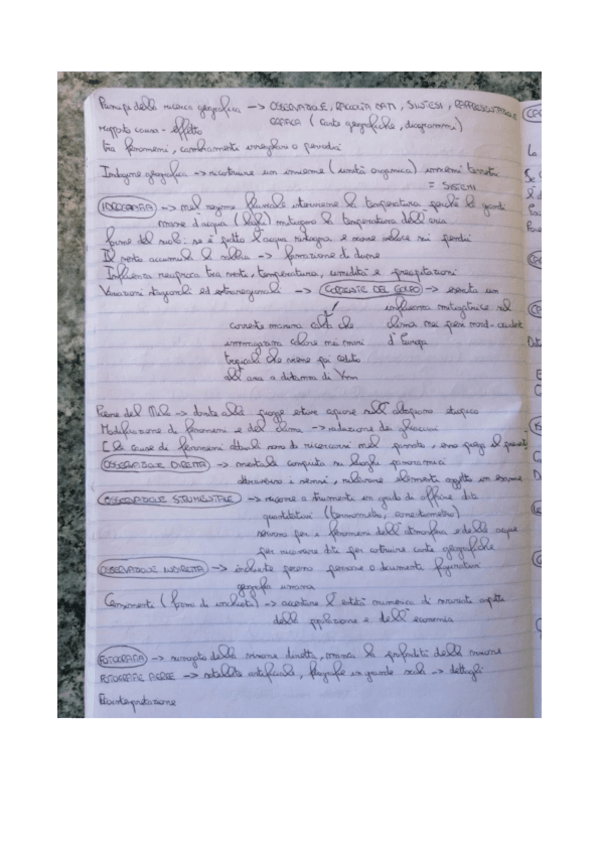 Principi della ricerca geografica → OSSERVAZIONE, RACCOLTA DATI, SINTESI, RAPPRESENTAZIONE
GRAFICA (carte geografiche, diagrammi)
rapporto causa-effetto
tra fenomeni, cambiamenti irregolari o periodici
Indagine geografica → ricostruire un insieme (unità organica) insiemi terrestri
= SISTEMI
IDROGRAFIA → nel regime fluviale interviene la temperatura perché le grandi
masse d'acqua (laghi) mitigano la temperatura dell'aria
forme del suolo: se è fitto l'acqua ristagna e scorre veloce sui pendii
Il vento accumula la sabbia → formazione di dune
Influenza reciproca tra venti, temperatura, umidità e precipitazioni
Variazioni stagionali ed extrastagionali → CORRENTE DEL GOLFO → esercita un
influenza mitigatrice sul
corrente marina calda che clima nei paesi nord-occident
immagazzina calore nei mari d'Europa
tropicali che viene poi ceduto
all'aria a distanza di Km
Piene del Nilo → dovute alle piogge estive cadute sull'altopiano etiopico
Modificazione di fenomeni e del clima → variazione dei ghiacciai
(le cause di fenomeni attuali sono da ricercarsi nel passato
OSSERVAZIONE DIRETTA → orientale compiuta su luoghi panoramici
attraverso i sensi, rilevare elementi oggetto in esame
OSSERVAZIONE STRUMENTALE → ricorre a strumenti in grado di offrire dati
quantitativi (termometro, anemometro)
servono per i fenomeni dell'atmosfera e delle acque
per ricavare dati per costruire carte geografiche
OSSERVAZIONE INDIRETTA → inchieste presso persone o documenti figurativi
geografia umana
Censimento (forma di inchiesta) → accertare l'entità numerica di svariati aspetti
della popolazione e dell'economia
FOTOGRAFIA → surrogato della visione diretta, manca la profondità della visione
FOTOGRAFIE AEREE → satellite artificiale, fotografie in grande scala → dettagli
Fotointerpretazione